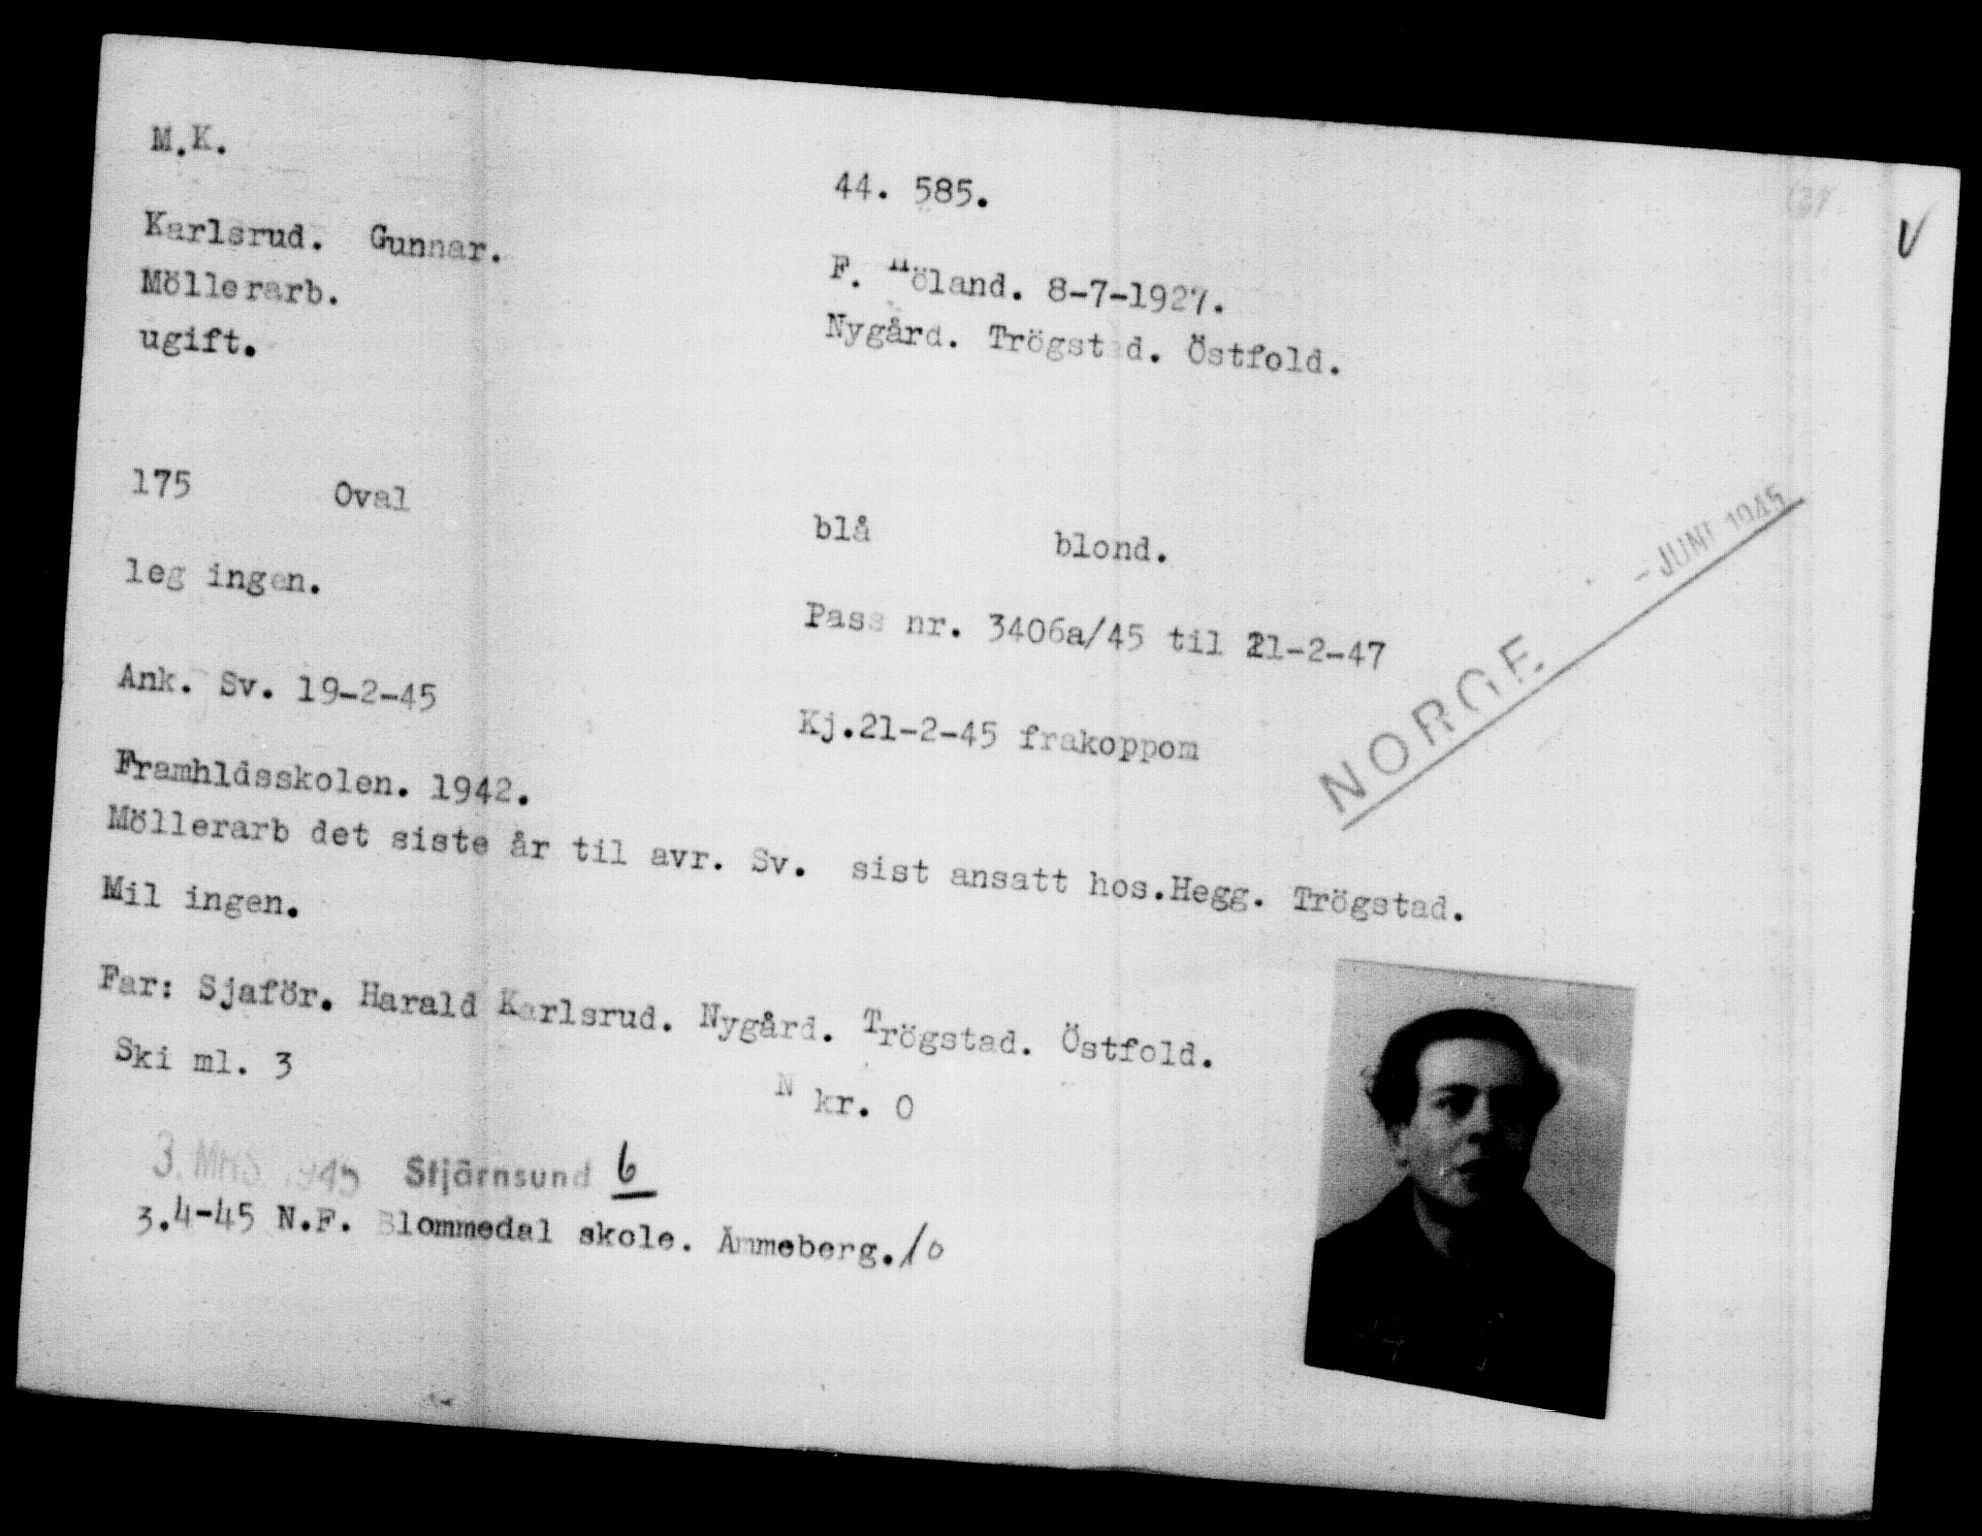 M.K.
44. 585.
V
Karlsrud. Gunnar.
F. Höland. 8-7-1927.
Möllerarb.
Nygård. Trögstad. Östfold.
ugift.
175 Oval
blå blond.
- JUNI 1945
leg ingen.
Pass nr. 3406a/45 til 21-2-47
NORGE.
Ank. Sv. 19-2-45
Kj.21-2-45 frakoppom
Framhldsskolen. 1942.
Möllerarb det siste år til avr. Sv. sist ansatt hos.Hegg. Trögstad.
Mil ingen.
Far: Sjaför. Harald Karlsrud. Nygård. Trögstad. Östfold.
Ski ml. 3
N kr. 0
3. MRS. 1945 Stjärnsund 6
3.4-45 N.F. Blommedal skole. Ammeberg./o